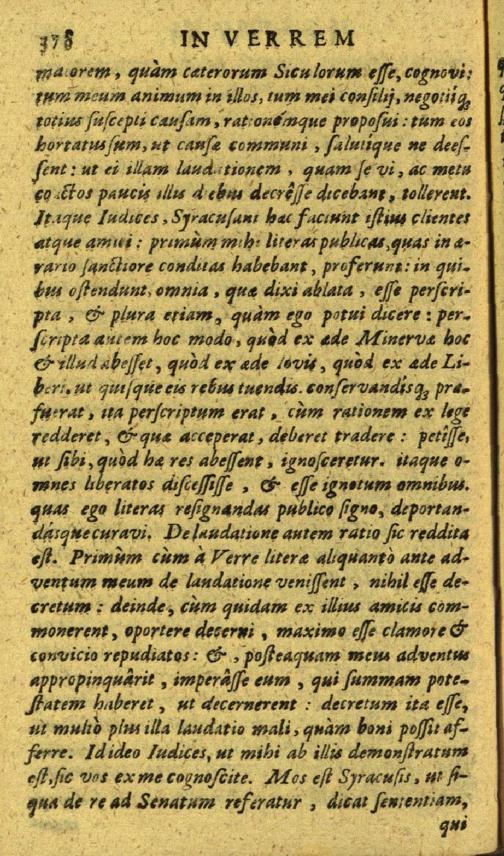 378 IN VERREM
maiorem, quàm cæterorum Siculorum esse, cognovi:
tum meum animum in illos, tum mei consilij, negotijq;
totius suscepti causam, rationémque proposui: tum eos
hortatus sum, ut causæ communi, salutique ne dees-
sent: ut ei illam laudationem, quam se vi, ac metu
coactos paucis illis diebus decrêsse dicebant, tollerent.
Itaque Iudices, Syracusani hæc faciunt istius clientes
atque amici: primùm mihi literas publicas, quas in æ-
rario sanctiore conditas habebant, proferunt: in qui-
bus ostendunt, omnia, quæ dixi ablata, esse perscri-
pta, & plura etiam, quàm ego potui dicere: per-
scripta autem hoc modo, quòd ex æde Minervæ hoc
& illud abesset, quòd ex æde Iovis, quòd ex æde Li-
beri. ut quisque eis rebus tuendis, conservandisq; præ-
fuerat, ita perscriptum erat, cùm rationem ex lege
redderet, & quæ acceperat, deberet tradere: petîsse,
ut sibi, quòd hæ res abessent, ignosceretur. itaque o-
mnes liberatos discessisse, & esse ignotum omnibus.
quas ego literas resignandas publico signo, deportan-
dásque curavi. De laudatione autem ratio sic reddita
est. Primùm cùm à Verre literæ aliquantò ante ad-
ventum meum de laudatione venissent, nihil esse de-
cretum: deinde, cùm quidam ex illius amicis com-
monerent, oportere decerni, maximo esse clamore &
convicio repudiatos: &, posteaquam meus adventus
appropinquârit, imperâsse eum, qui summam pote-
statem haberet, ut decernerent: decretum ita esse,
ut multò plus illa laudatio mali, quàm boni possit af-
ferre. Id ideo Iudices, ut mihi ab illis demonstratum
est, sic vos ex me cognoscite. Mos est Syracusis, ut si-
qua de re ad Senatum referatur, dicat sententiam,
qui